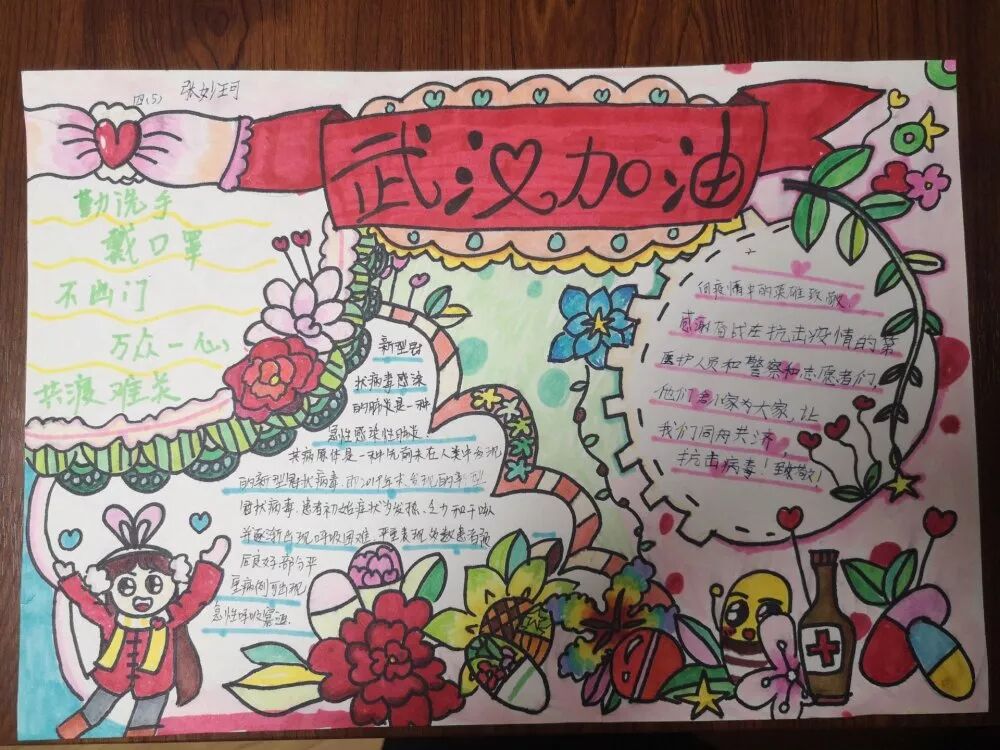 四(5) 张妙珂
武汉加油
勤洗手
戴口罩
不出门
万众一心
共渡难关
新型冠
状病毒感染
的肺炎是一种
急性感染性肺炎.
其病原体是一种先前未在人类中发现
的新型冠状病毒 即2019年末发现的新型
冠状病毒.患者初始症状为发热、乏力和干咳
并逐渐出现呼吸困难 严重表现.多数患者预
后良好 部分严
重病例可出现
急性呼吸窘迫
向疫情中的英雄致敬
感谢奋战在抗击疫情的
医护人员和警察和志愿者们,
他们舍小家为大家,让
我们同舟共济,
抗击病毒!致敬!